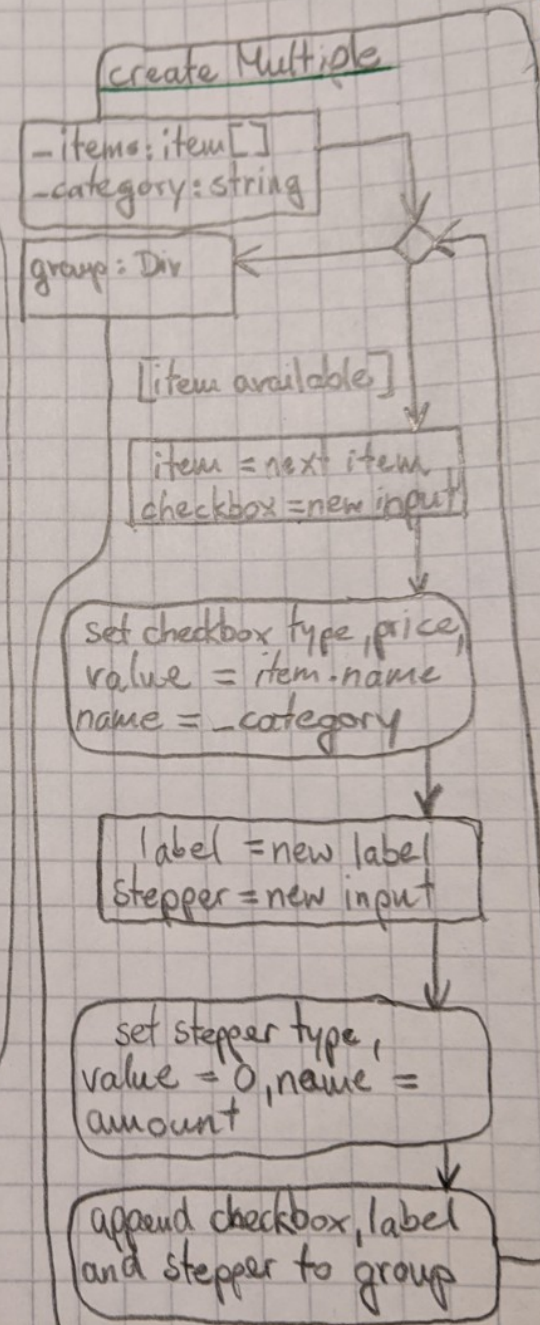 create Multiple
_items: item[]
_category: string
group: Div
[item available]
item = next item
checkbox = new input
set checkbox type, price,
value = item.name
name = _category
label = new label
stepper = new input
set stepper type,
value = 0, name =
amount
append checkbox, label
and stepper to group